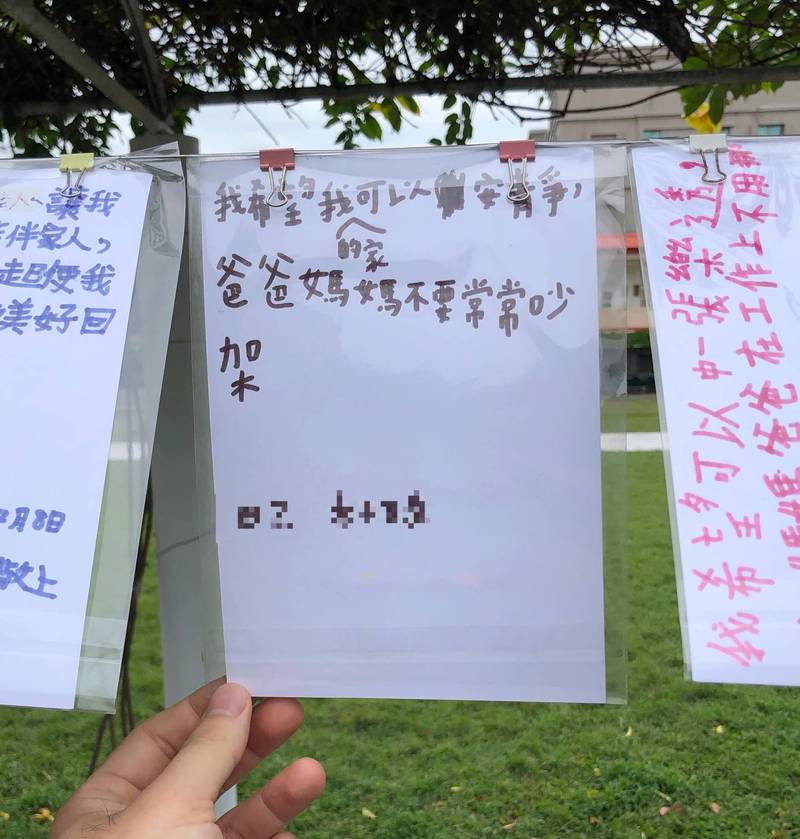 讓我
伴家人，
起使我
美好回
月8日
敬上
我希望我可以安靜，
的家
爸爸媽媽不要常常吵
架
我希望可以中一張樂透！
媽媽爸爸在工作上不用